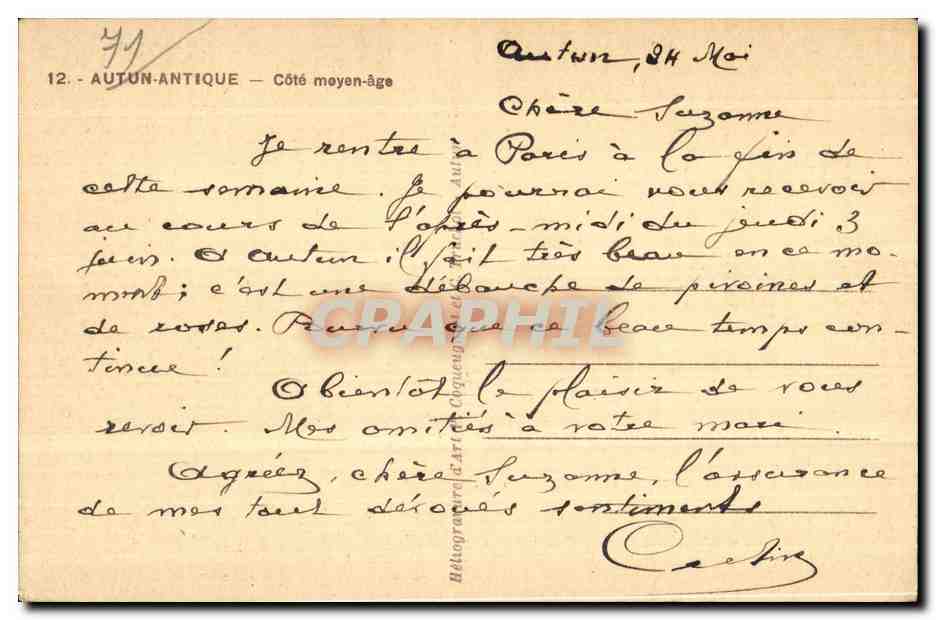 71
12. - AUTUN-ANTIQUE — Côté moyen-âge
Autun, 24 Mai
Chère Suzanne
Je rentre à Paris à la fin de
cette semaine. Je pourrai vous recevoir
au cours de l'après-midi du jeudi 3
juin. A Autun il fait très beau en ce mo-
ment; c'est une débauche de pivoines et
de roses. Pourvu que ce beau temps con-
tinue!
A bientôt le plaisir de vous
revoir. Mes amitiés à votre mari.
Agréez, chère Suzanne, l'assurance
de mes tout dévoués sentiments
Héliogravure d'Art Coqueugniot et Autun
CPARHIL